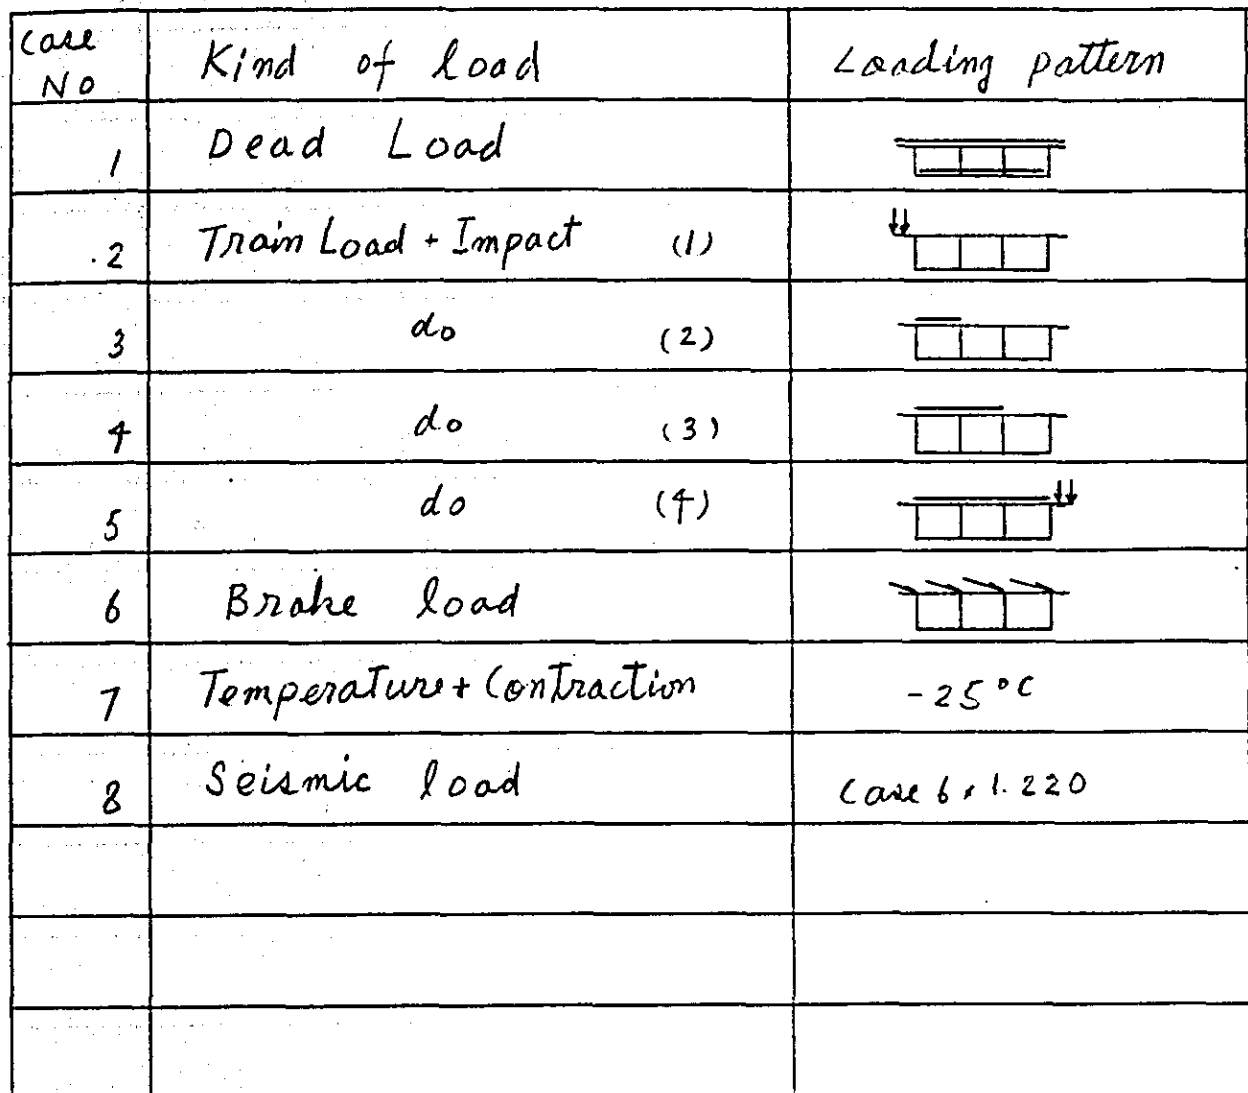 Case No Kind of load Loading pattern
1 Dead Load
2 Train Load + Impact (1)
3 do (2)
4 do (3)
5 do (4)
6 Brake load
7 Temperature + Contraction -25°C
8 Seismic load Case 6 × 1.220